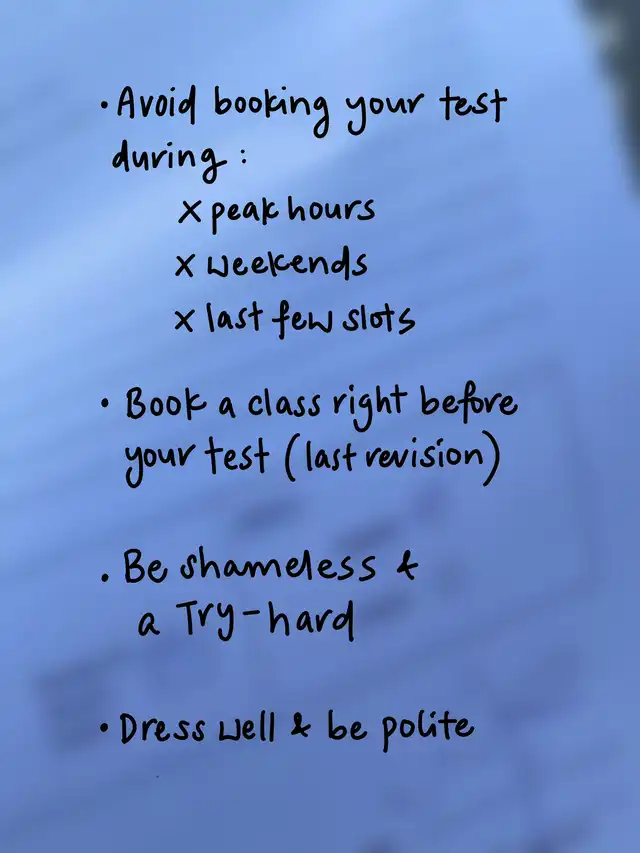 • Avoid booking your test
during :
x peak hours
x weekends
x last few slots
• Book a class right before
your test (last revision)
• Be shameless &
a Try-hard
• Dress well & be polite